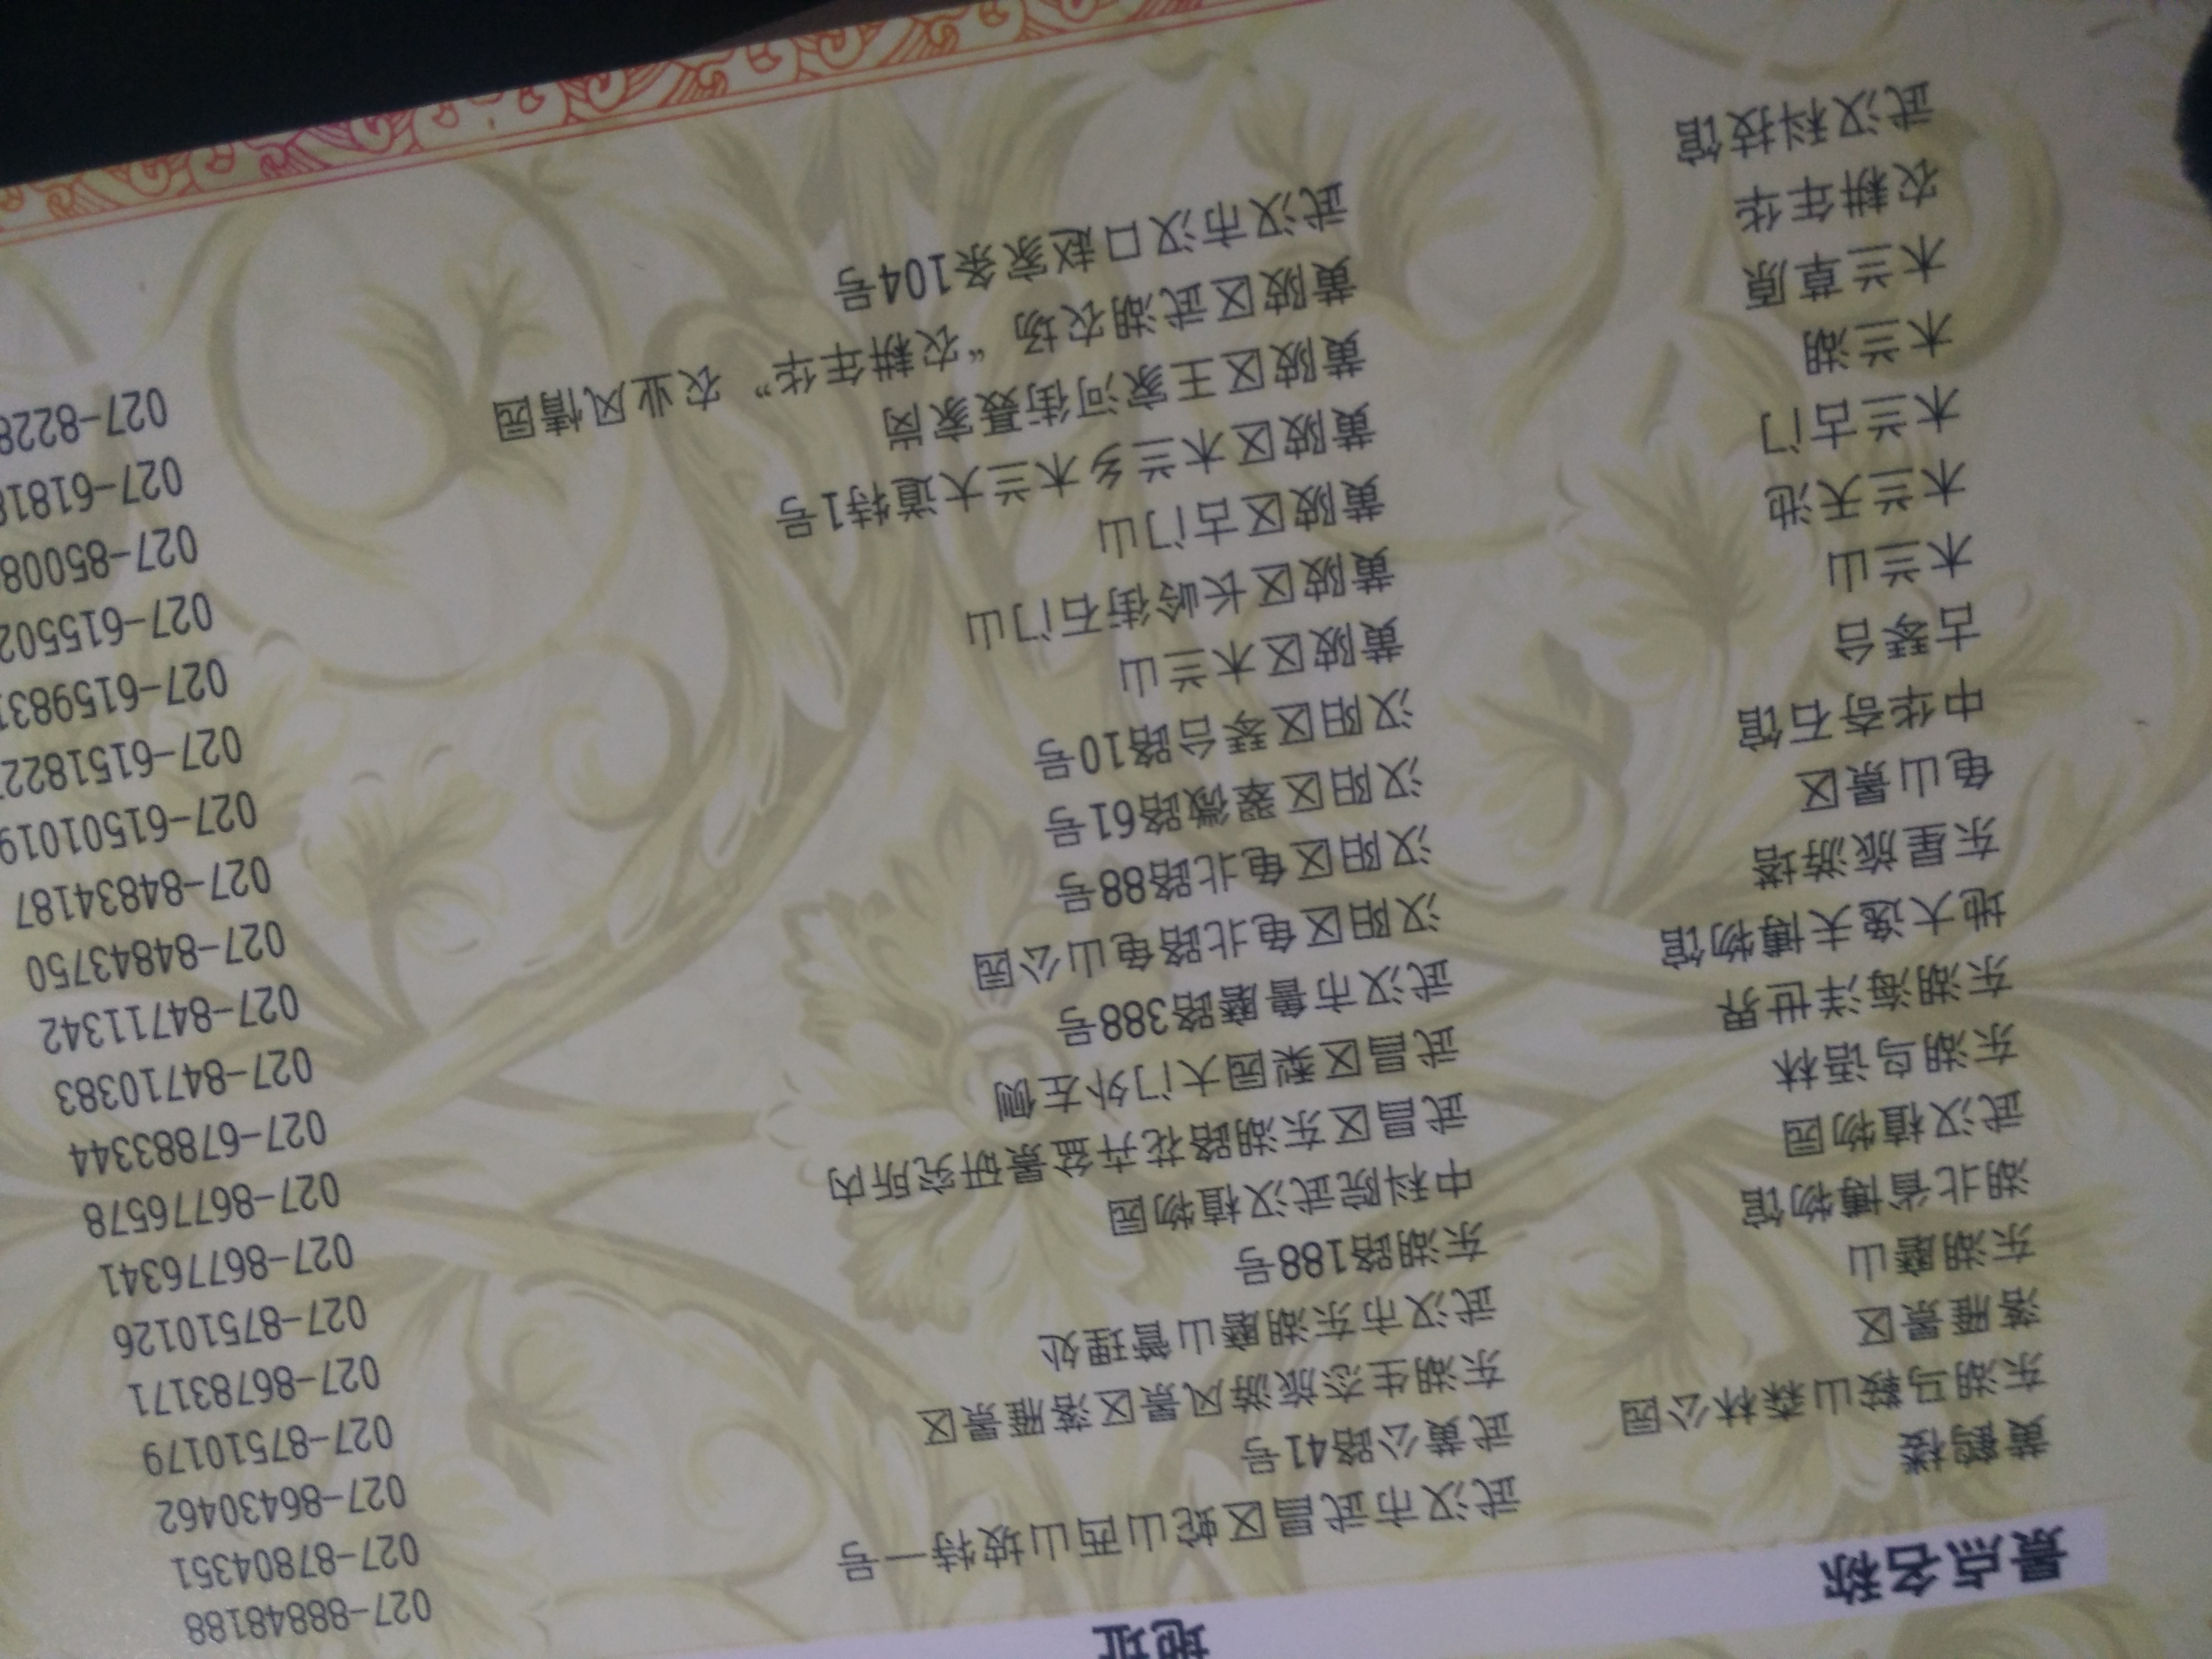 景点名称 地址
黄鹤楼 武汉市武昌区蛇山西山坡特一号 027-88848188
东湖马鞍山森林公园 武黄公路41号 027-87804351
落雁景区 东湖生态旅游风景区落雁景区 027-86430462
东湖磨山 武汉市东湖磨山管理处 027-87510179
湖北省博物馆 东湖路188号 027-86783171
武汉植物园 中科院武汉植物园 027-87510126
东湖鸟语林 武昌区东湖路花卉盆景研究所内 027-86776341
东湖海洋世界 武昌区梨园大门外左侧 027-86776578
地大逸夫博物馆 武汉市鲁磨路388号 027-67883344
东星旅游塔 汉阳区龟北路龟山公园 027-84710383
龟山景区 汉阳区龟北路88号 027-84711342
中华奇石馆 汉阳区翠微路61号 027-84843750
古琴台 汉阳区琴台路10号 027-84834187
木兰山 黄陂区木兰山 027-61501019
木兰天池 黄陂区长岭街石门山 027-6151822
木兰古门 黄陂区古门山 027-615983
木兰湖 黄陂区木兰乡木兰大道特1号 027-615502
木兰草原 黄陂区王家河街聂家岗 027-85008
农耕年华 黄陂区武湖农场“农耕年华”农业风情园 027-61818
武汉科技馆 武汉市汉口赵家条104号 027-8228